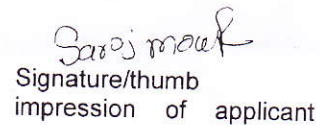 Saroj mour
Signature/thumb
impression of applicant